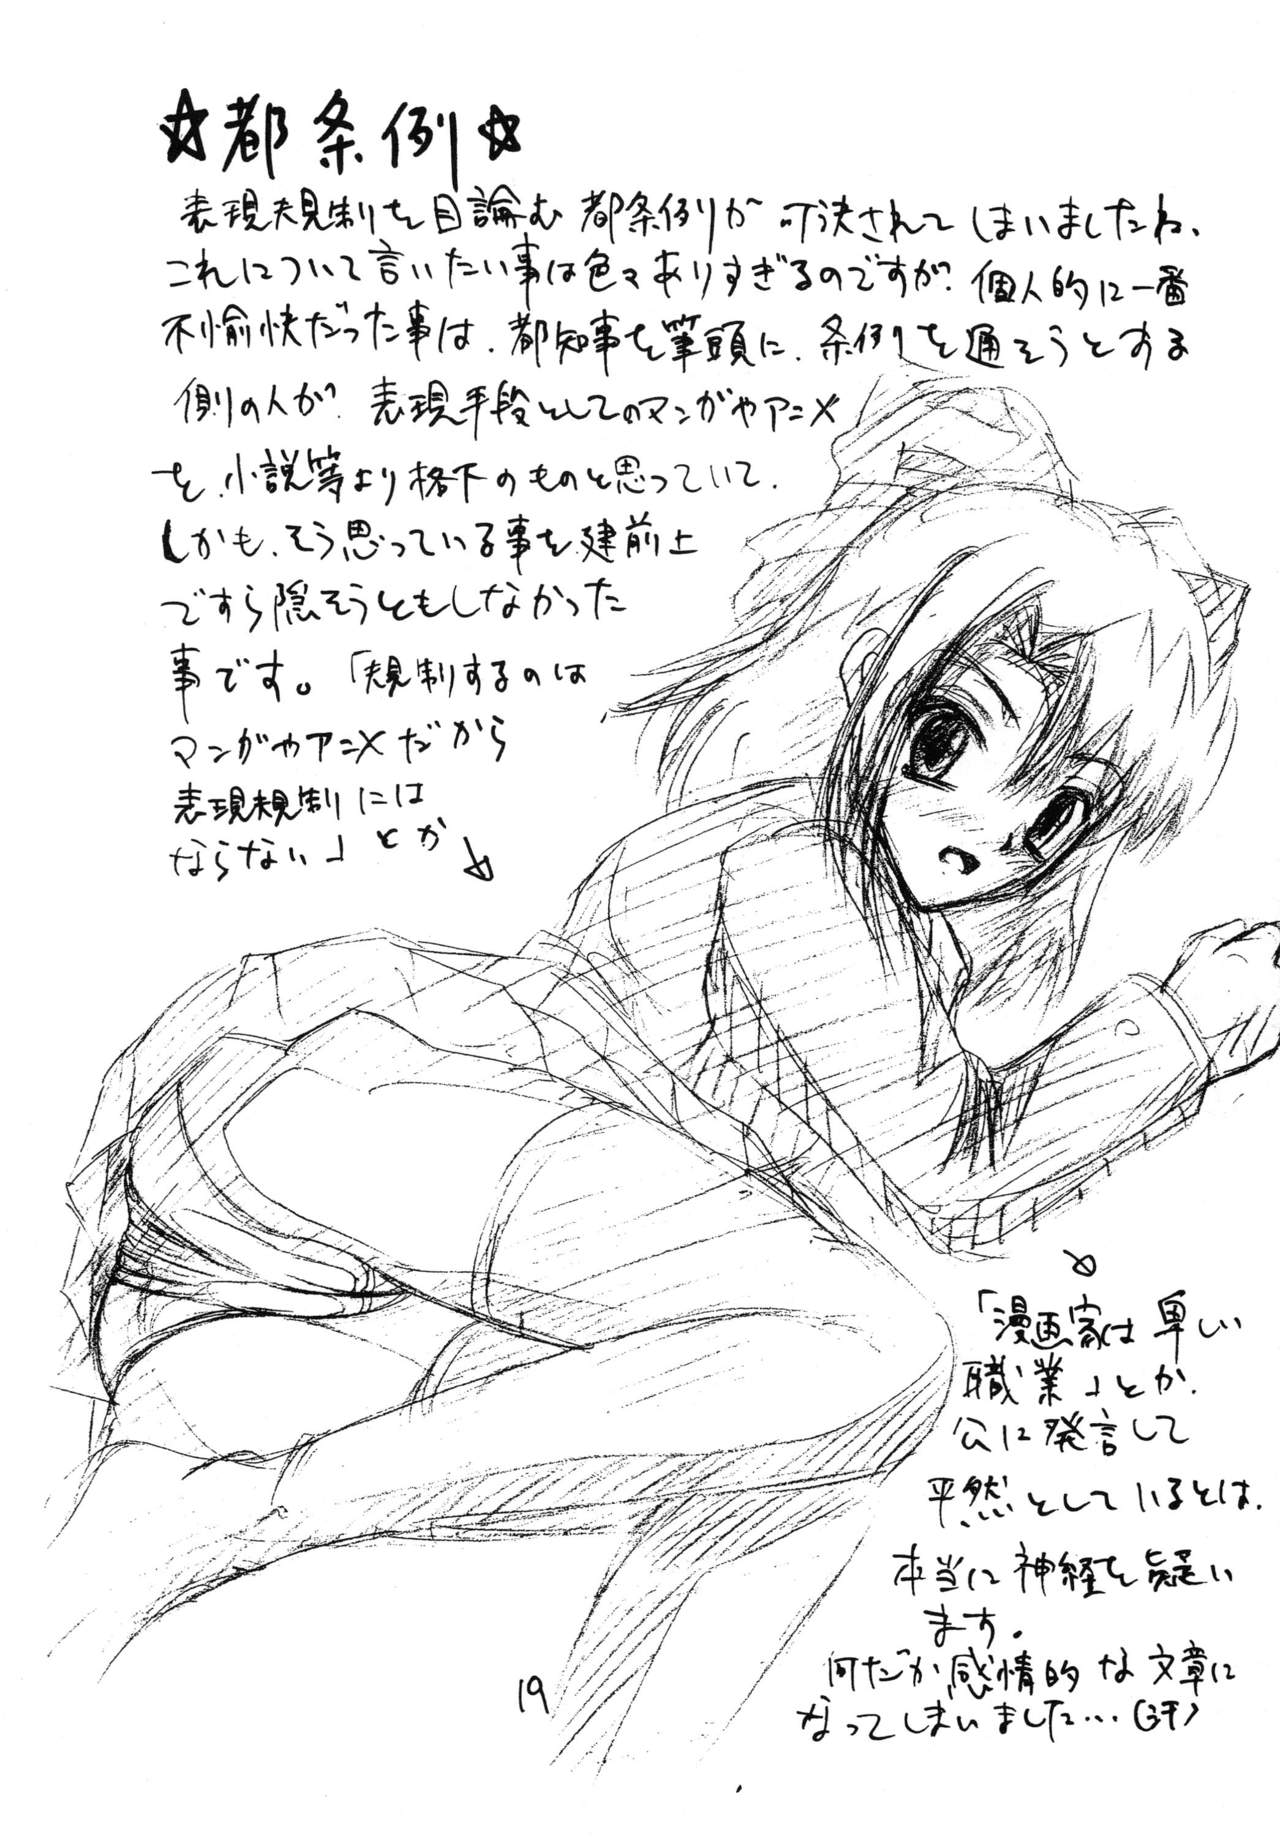 ☆都条例☆
表現規制を目論む都条例が可決されてしまいましたね、
これについて言いたい事は色々ありすぎるのですが、個人的に一番
不愉快だった事は、都知事を筆頭に、条例を通そうとする
側の人が、表現手段としてのマンガやアニメ
を、小説等より格下のものと思っていて、
しかも、そう思っている事を建前上
ですら隠そうともしなかった
事です。「規制するのは
マンガやアニメだから
表現規制には
ならない」とか
「漫画家は卑しい
職業」とか、
公に発言して
平然としているとは、
本当に神経を疑い
ます。
何だか感情的な文章に
なってしまいました…(汗)
19